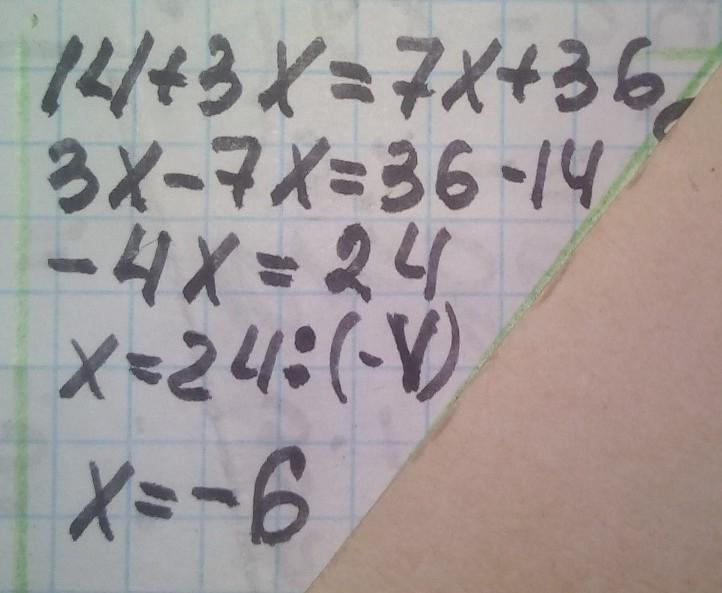 14+3x=7x+36
3x-7x=36-14
-4x=24
x=24:(-4)
x=-6